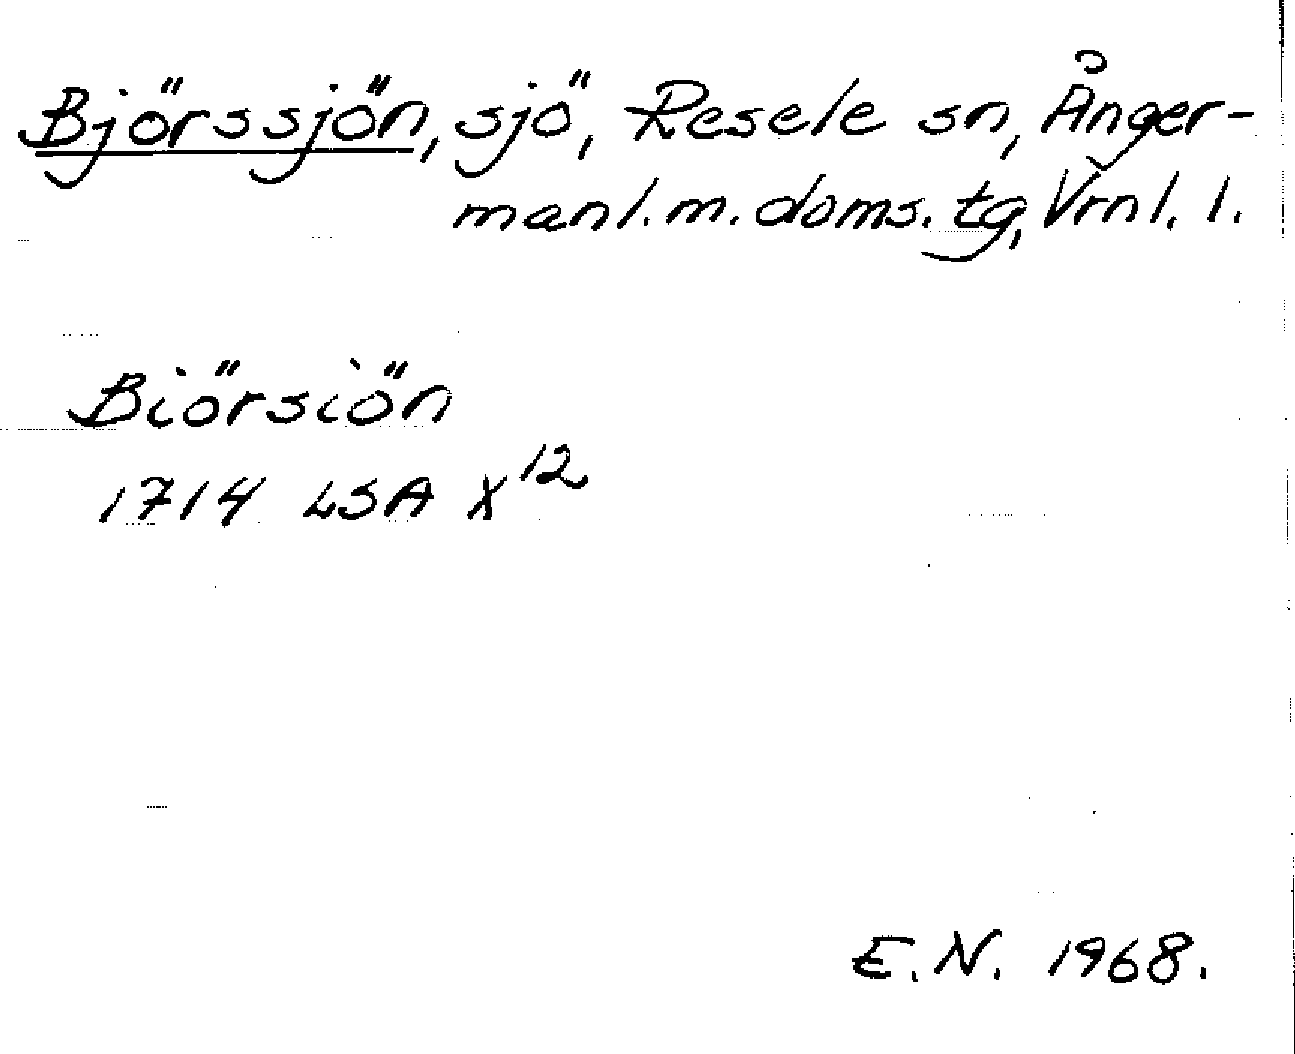 Björssjön, sjö, Resele sn, Ånger-
manl. m. doms. tg, Vrnl. l.
Biörsiön
1714 LSA X¹²
E.N. 1968.